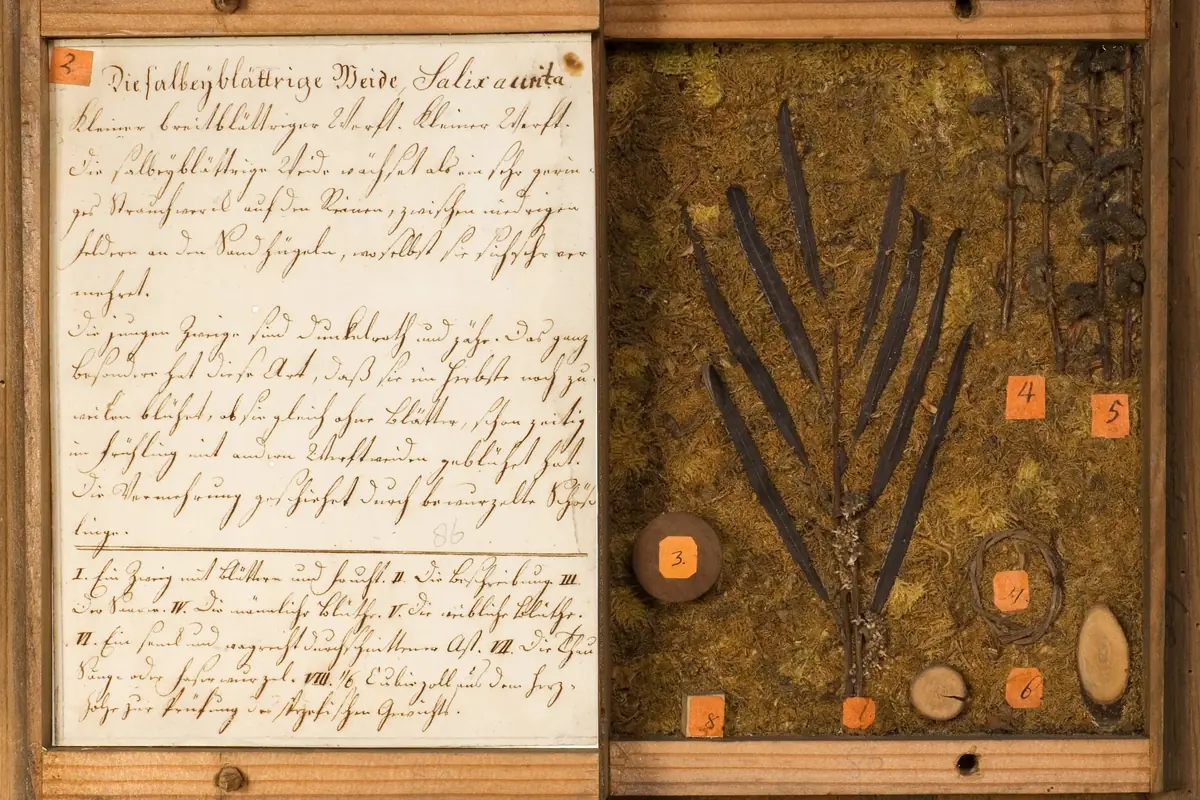 2
Die salbeyblättrige Weide, Salix aurita
Kleiner breitblättriger Werft. Kleiner Werft.
Die salbeyblättrige Weide wächset als ein sehr gerin-
ges Strauchwerk auf den Reinen, zwischen niedrigen
Feldern an den Sandhügeln, woselbst sie sich sehr ver
mehret.
Die jungen Zweige sind dunkelroth und zähe. Das ganz
besondere hat diese Art, daß sie im Herbste noch zu-
weilen blühet, ob sie gleich ohne Blätter, schon zeitig
im Frühling mit andern Werftweiden geblühet hat.
Die Vermehrung geschiehet durch bewurzelte Schöß
linge.
86
I. Ein Zweig mit Blättern und Frucht. II. Die Beschreibung. III.
Der Saame. IV. Die männliche Blüthe. V. Die weibliche Blüthe.
VI. Ein senk und wagrecht durchschnittener Ast. VII. Die Thau
Sauge oder Faserwurzel. VIII. 1/6 Cubiczoll aus dem Herz-
holze zur Prüfung des spezifischen Gewichts.
4
5
3.
7
6
8
1